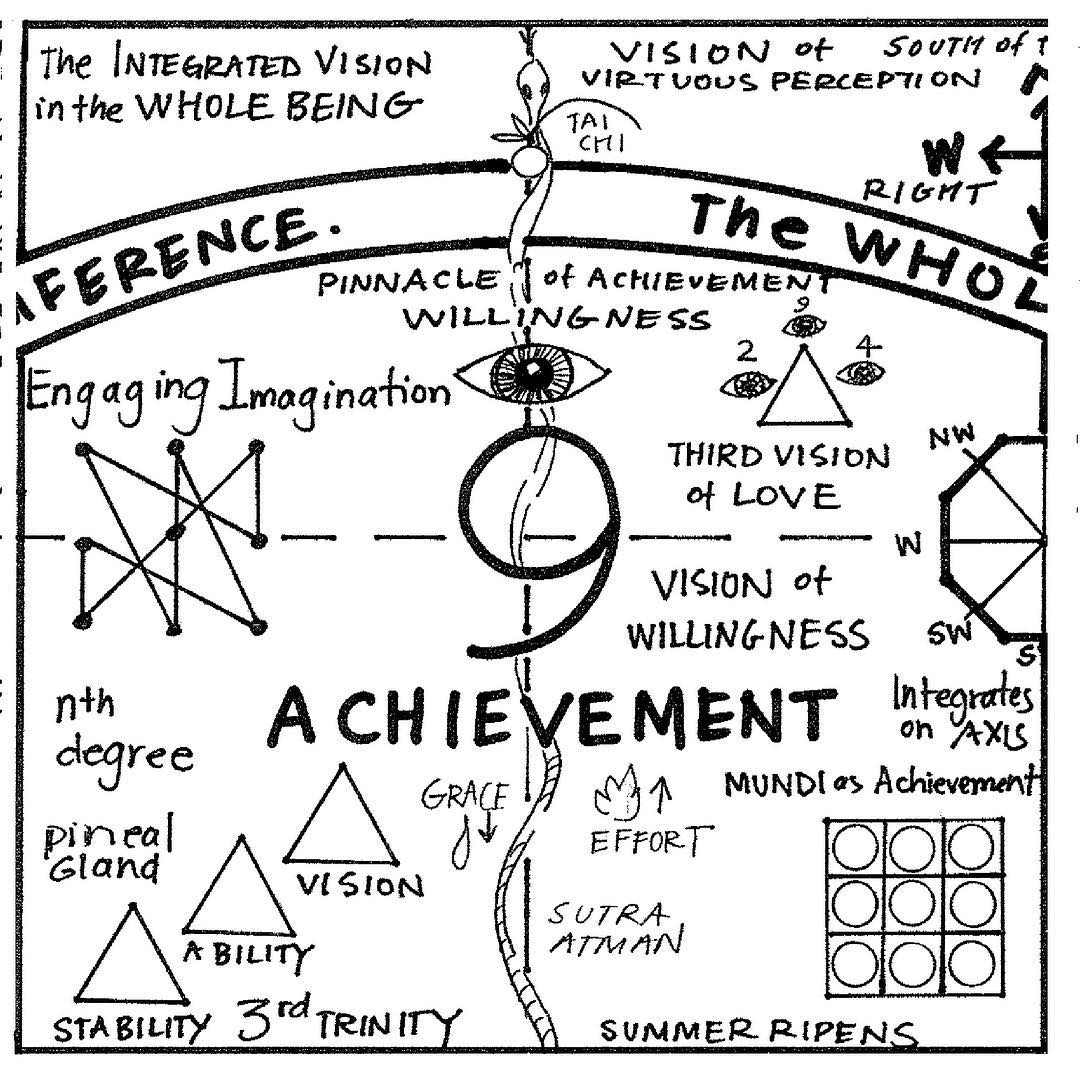 The INTEGRATED VISION
in the WHOLE BEING
VISION of
VIRTUOUS PERCEPTION
SOUTH of
TAI
CHI
W
RIGHT
FERENCE.
The WHOL
PINNACLE of ACHIEVEMENT
WILLINGNESS
Engaging Imagination
9
2
4
THIRD VISION
of LOVE
NW
W
SW
S
9
VISION of
WILLINGNESS
nth
degree
ACHIEVEMENT
Integrates
on AXIS
MUNDI as Achievement
GRACE
EFFORT
pineal
Gland
VISION
ABILITY
STABILITY
3rd TRINITY
SUTRA
ATMAN
SUMMER RIPENS